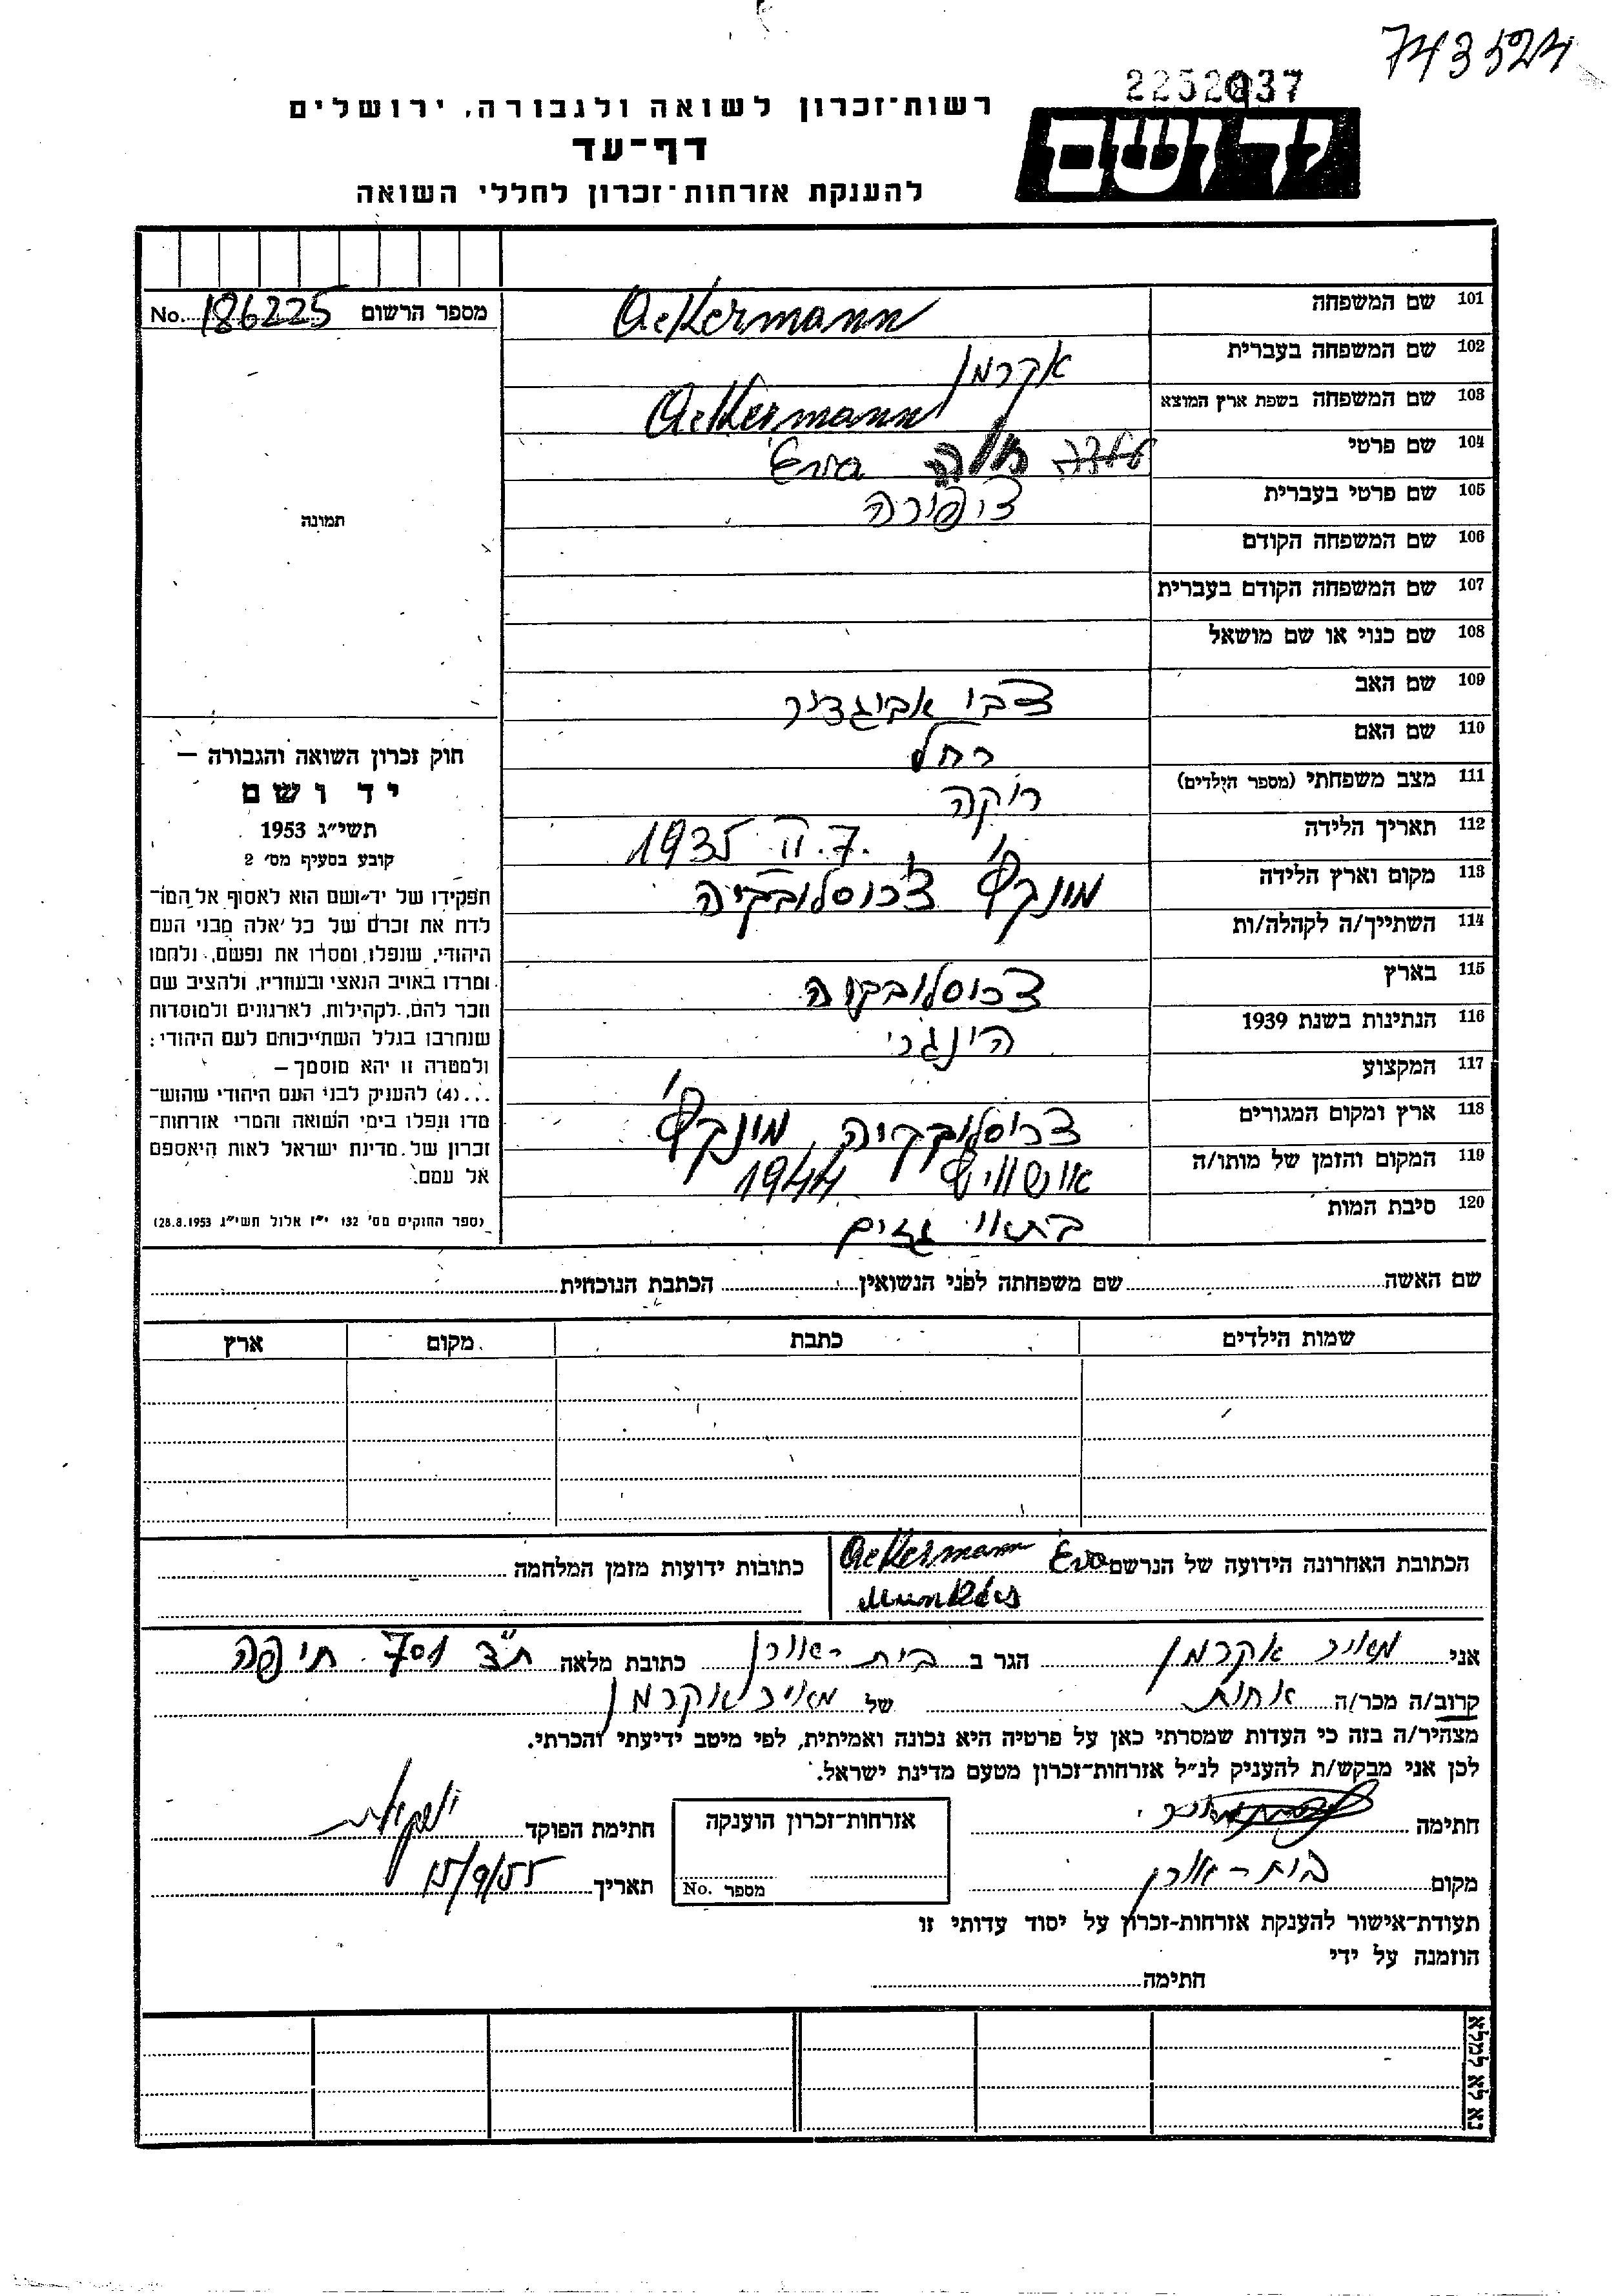 743524
2252037
יד ושם
רשות־זכרון לשואה ולגבורה, ירושלים
דף־עד
להענקת אזרחות־זכרון לחללי השואה
מספר הרשום No. 186225
101 שם המשפחה Ackermann
102 שם המשפחה בעברית אקרמן
103 שם המשפחה בשפת ארץ המוצא Ackermann
104 שם פרטי Eva
105 שם פרטי בעברית ציפורה
106 שם המשפחה הקודם
107 שם המשפחה הקודם בעברית
108 שם כנוי או שם מושאל
109 שם האב צבי אביגדור
110 שם האם רחל
111 מצב משפחתי (מספר הילדים) רוקה
112 תאריך הלידה 7. II. 1935
113 מקום וארץ הלידה מונקץ' צ'כוסלובקיה
114 השתייך/ה לקהלה/ות
115 בארץ צכוסלובקיה
116 הנתינות בשנת 1939 הינגרי
117 המקצוע
118 ארץ ומקום המגורים צכוסלובקיה מונקץ'
119 המקום והזמן של מותו/ה אושוויץ 1944
120 סיבת המות בתאי גזים
תמונה
חוק זכרון השואה והגבורה —
יד ושם
תשי״ג 1953
קובע בסעיף מס׳ 2
תפקידו של יד־ושם הוא לאסוף אל המו־
לדת את זכרם של כל אלה מבני העם
היהודי, שנפלו ומסרו את נפשם, נלחמו
ומרדו באויב הנאצי ובעוזריו, ולהציב שם
וזכר להם, לקהילות, לארגונים ולמוסדות
שנחרבו בגלל השתייכותם לעם היהודי;
ולמטרה זו יהא מוסמך —
...(4) להעניק לבני העם היהודי שהוש־
מדו ונפלו בימי השואה והמרי אזרחות־
זכרון של מדינת ישראל לאות היאספם
אל עמם.
(ספר החוקים מס׳ 132 י״ז אלול תשי״ג 28.8.1953)
שם האשה שם משפחתה לפני הנשואין הכתבת הנוכחית
שמות הילדים כתבת מקום ארץ
הכתובת האחרונה הידועה של הנרשם Ackermann Eva
Munkács
כתובות ידועות מזמן המלחמה
אני מאיר אקרמן הגר ב בית-אורן כתובת מלאה ת״ד 701 חיפה
קרוב/ה מכר/ה אחות של מאיר אקרמן
מצהיר/ה בזה כי העדות שמסרתי כאן על פרטיה היא נכונה ואמיתית, לפי מיטב ידיעתי והכרתי.
לכן אני מבקש/ת להעניק לנ״ל אזרחות־זכרון מטעם מדינת ישראל.
חתימה
אזרחות־זכרון הוענקה
מספר No.
חתימת הפוקד
מקום בית-אורן
תאריך 15/9/55
תעודת־אישור להענקת אזרחות־זכרון על יסוד עדותי זו
הוזמנה על ידי
חתימה
נא לא למלא